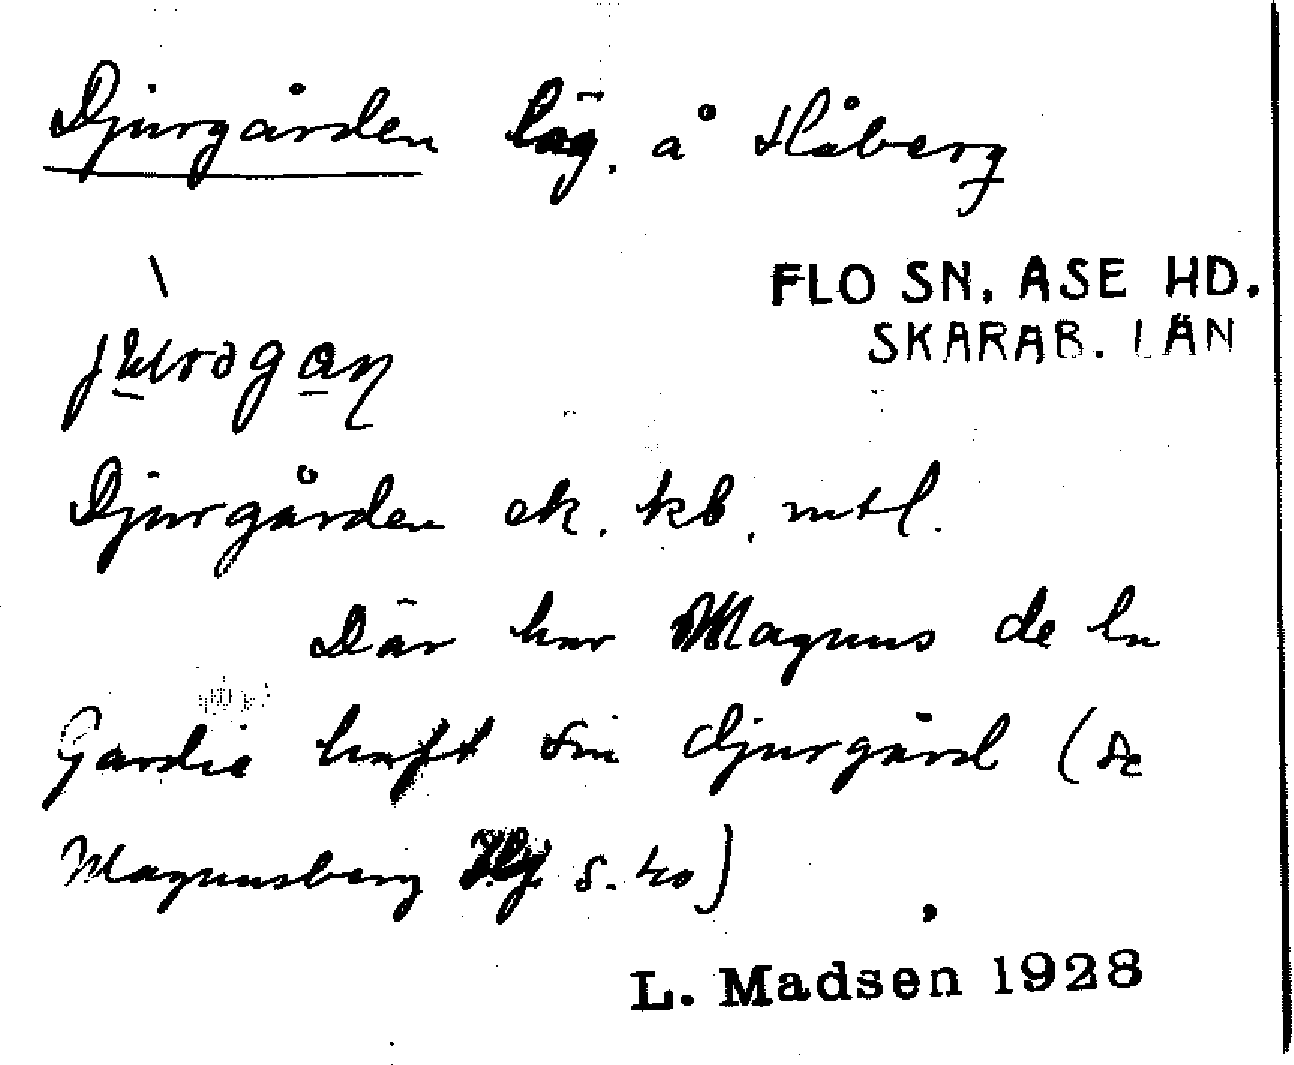 Djurgården läg. å Håberg
FLO SN. ASE HD.
SKARAB. LÄN
Djurgården ek. kb. mtl.
Där har Magnus de la
Gardie haft sin djurgård (se
Magnusberg s. 40)
L. Madsen 1928